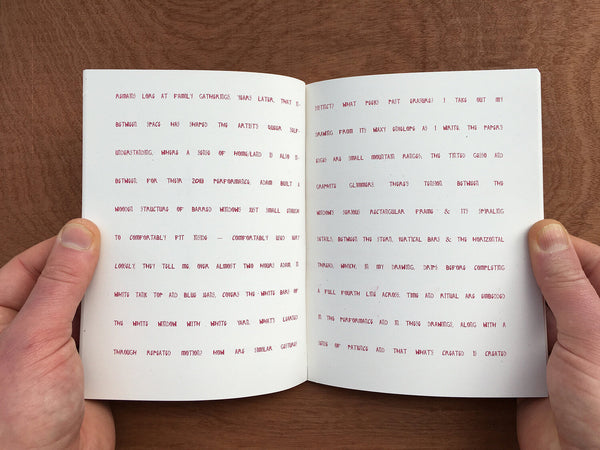 REMAINS LORE AT FAMILY GATHERINGS YEARS LATER. THAT IN-
BETWEEN SPACE HAS SHAPED THE ARTIST'S QUEER SELF-
UNDERSTANDING, WHERE A SENSE OF HOME/LAND IS ALSO IN-
BETWEEN. FOR THEIR PERFORMANCE, ADAM BUILT A
WOODEN STRUCTURE OF BARRED WINDOWS JUST SMALL ENOUGH
TO COMFORTABLY FIT INSIDE — COMFORTABLY USED VERY
LOOSELY, THEY TELL ME. OVER ALMOST TWO HOURS ADAM, IN
WHITE TANK TOP AND BLUE JEANS, COVERS THE WHITE BARS OF
THE WHITE WINDOW WITH WHITE YARN. WHAT'S LEARNED
THROUGH REPEATED MOTION? HOW ARE SIMILAR GESTURES
DISTINCT? WHAT PEEKS PAST ERASURE? I TAKE OUT MY
DRAWING FROM ITS WAXY ENVELOPE AS I WRITE. THE PAPER'S
EDGES ARE SMALL MOUNTAIN RANGES, THE TINTED GESSO AND
GRAPHITE GLIMMERS. THERE'S TENSION BETWEEN THE
WINDOW'S SERIOUS RECTANGULAR FRAME & ITS SPIRALING
DETAILS, BETWEEN THE STERN, VERTICAL BARS & THE HORIZONTAL
THREAD, WHICH, IN MY DRAWING, DRIPS BEFORE COMPLETING
A FULL FOURTH LINE ACROSS. TIME AND RITUAL ARE EMBEDDED
IN THE PERFORMANCE AND IN THESE DRAWINGS, ALONG WITH A
SENSE OF PATIENCE AND THAT WHAT'S CREATED IS CREATED